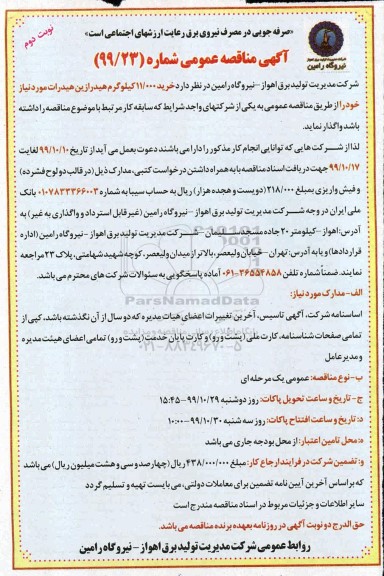 «صرفه جویی در مصرف نیروی برق رعایت ارزشهای اجتماعی است»
نوبت دوم
آگهی مناقصه عمومی شماره (۹۹/۲۳)
نیروگاه رامین
شرکت مدیریت تولید برق اهواز – نیروگاه رامین در نظر دارد خرید ۱۱/۰۰۰ کیلوگرم هیدرازین هیدرات مورد نیاز
خود را از طریق مناقصه عمومی به یکی از شرکتهای واجد شرایط که سابقه کار مرتبط با موضوع مناقصه را داشته
باشد واگذار نماید.
لذا از شرکت هایی که توانایی انجام کار مذکور را دارا می باشند دعوت بعمل می آید از تاریخ ۹۹/۱۰/۱۰ لغایت
۹۹/۱۰/۱۷ جهت دریافت اسناد مناقصه با به همراه داشتن درخواست کتبی، مدارک ذیل (در قالب دو لوح فشرده)
و فیش واریزی بمبلغ ۲۱۸/۰۰۰ (دویست و هجده هزار) ریال به حساب سیبا به شماره ۰۱۰۷۸۳۳۳۶۶۰۰۳ بانک
ملی ایران در وجه شرکت مدیریت تولید برق اهواز – نیروگاه رامین (غیر قابل استرداد و واگذاری به غیر) به
آدرس: اهواز – کیلومتر ۲۰ جاده مسجد سلیمان – شرکت مدیریت تولید برق اهواز – نیروگاه رامین (اداره
قراردادها) و یا به آدرس: تهران – خیابان ولیعصر، بالاتر از میدان ولیعصر، کوچه شهید شهامتی، پلاک ۲۳ مراجعه
نمایند. ضمنا شماره تلفن ۳۶۵۵۳۸۵۸-۰۶۱ آماده پاسخگویی به سئوالات شرکت های محترم می باشد.
الف- مدارک مورد نیاز:
اساسنامه شرکت، آگهی تاسیس، آخرین تغییرات اعضای هیات مدیره که دو سال از آن نگذشته باشد، کپی از
تمامی صفحات شناسنامه، کارت ملی (پشت و رو) و کارت پایان خدمت (پشت و رو) تمامی اعضای هیئت مدیره
و مدیر عامل
ب- نوع مناقصه: عمومی یک مرحله ای
ج- تاریخ و ساعت تحویل پاکات: روز دوشنبه ۹۹/۱۰/۲۹-۱۵:۴۵
د: تاریخ و ساعت افتتاح پاکات: روز سه شنبه ۹۹/۱۰/۳۰-۱۰:۰۰
ه: محل تامین اعتبار: از محل بودجه جاری می باشد
و: تضمین شرکت در فرایند ارجاع کار: مبلغ ۴۳۸/۰۰۰/۰۰۰ ریال (چهارصد و سی و هشت میلیون ریال) می باشد
که بر اساس آخرین آیین نامه تضمین برای معاملات دولتی، می بایست تهیه و تسلیم گردد
سایر اطلاعات و جزئیات مربوط در اسناد مناقصه مندرج است
حق الدرج دو نوبت آگهی در روزنامه بعهده برنده مناقصه می باشد.
روابط عمومی شرکت مدیریت تولید برق اهواز – نیروگاه رامین
ParsNamadData
۰۲۱-۸۸۳۴۹۶۷۰-۵